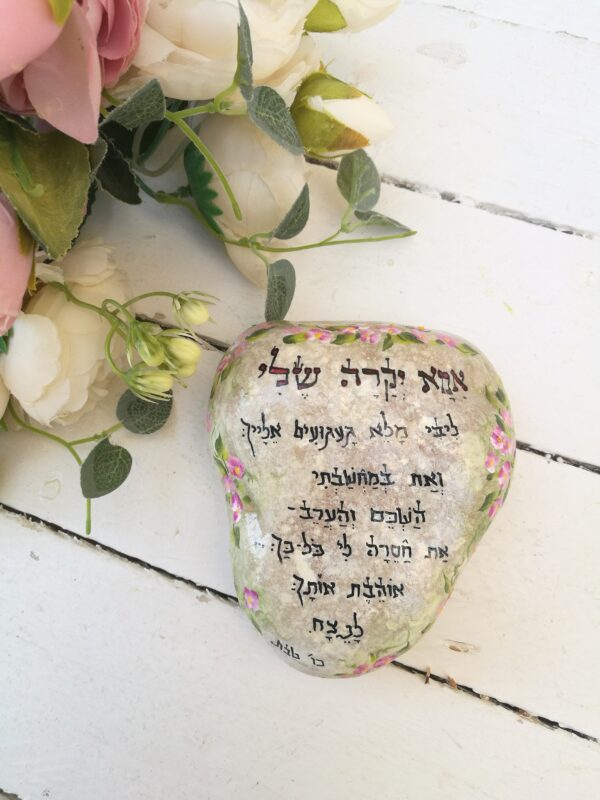 אִמָּא יְקָרָה שֶׁלִּי
לִיבִּי מָלֵא גַּעְגּוּעִים אֵלָיִיךְ
וְאַתְּ בְּמַחְשַׁבְתִּי
הַשְׁכֵּם וְהַעֲרֵב-
אַתְּ חֲסֵרָה לִי כָּל-כָּךְ...
אוֹהֶבֶת אוֹתָךְ
לָנֶצַח.
כו' טבת